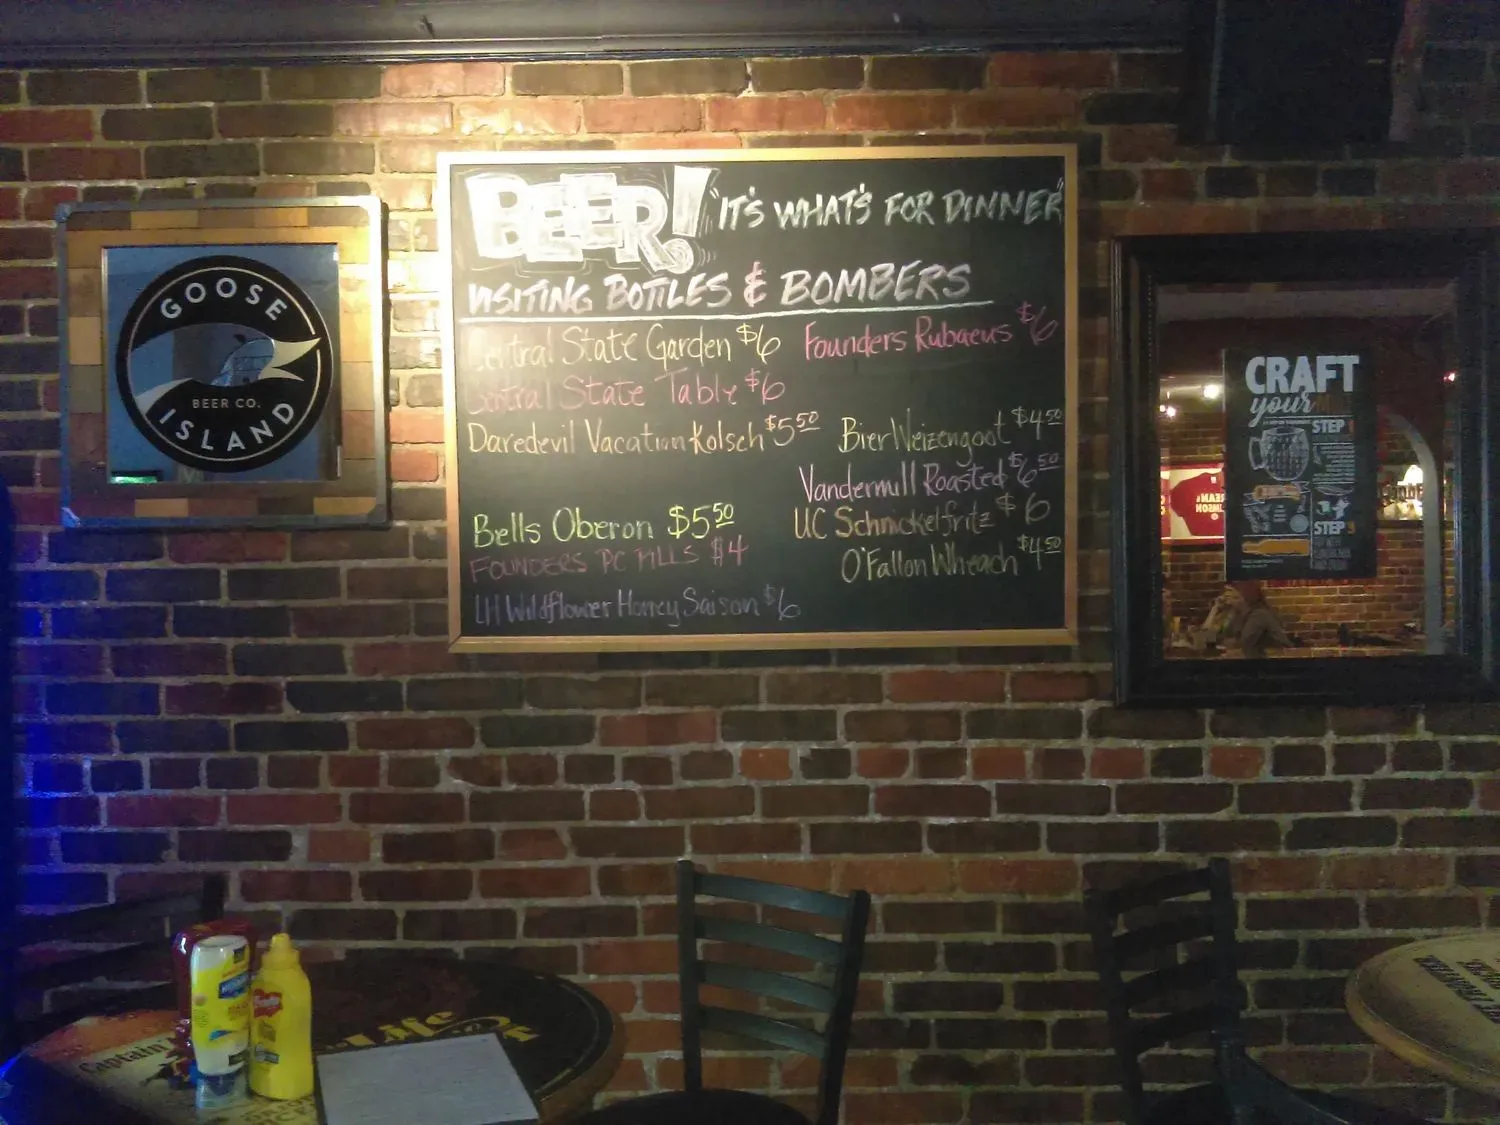 GOOSE
BEER CO.
ISLAND
BEER! "IT'S WHAT'S FOR DINNER"
VISITING BOTTLES & BOMBERS
Central State Garden $6
Central State Table $6
Daredevil Vacation Kolsch $5.50
Bells Oberon $5.50
FOUNDERS PC PILLS $4
LH Wildflower Honey Saison $6
Founders Rubaeus $6
Bier Weizengoot $4.50
Vandermill Roasted $6.50
UC Schnickelfritz $6
O'Fallon Wheach $4.50
CRAFT
your
STEP
STEP 3
Captain
Life